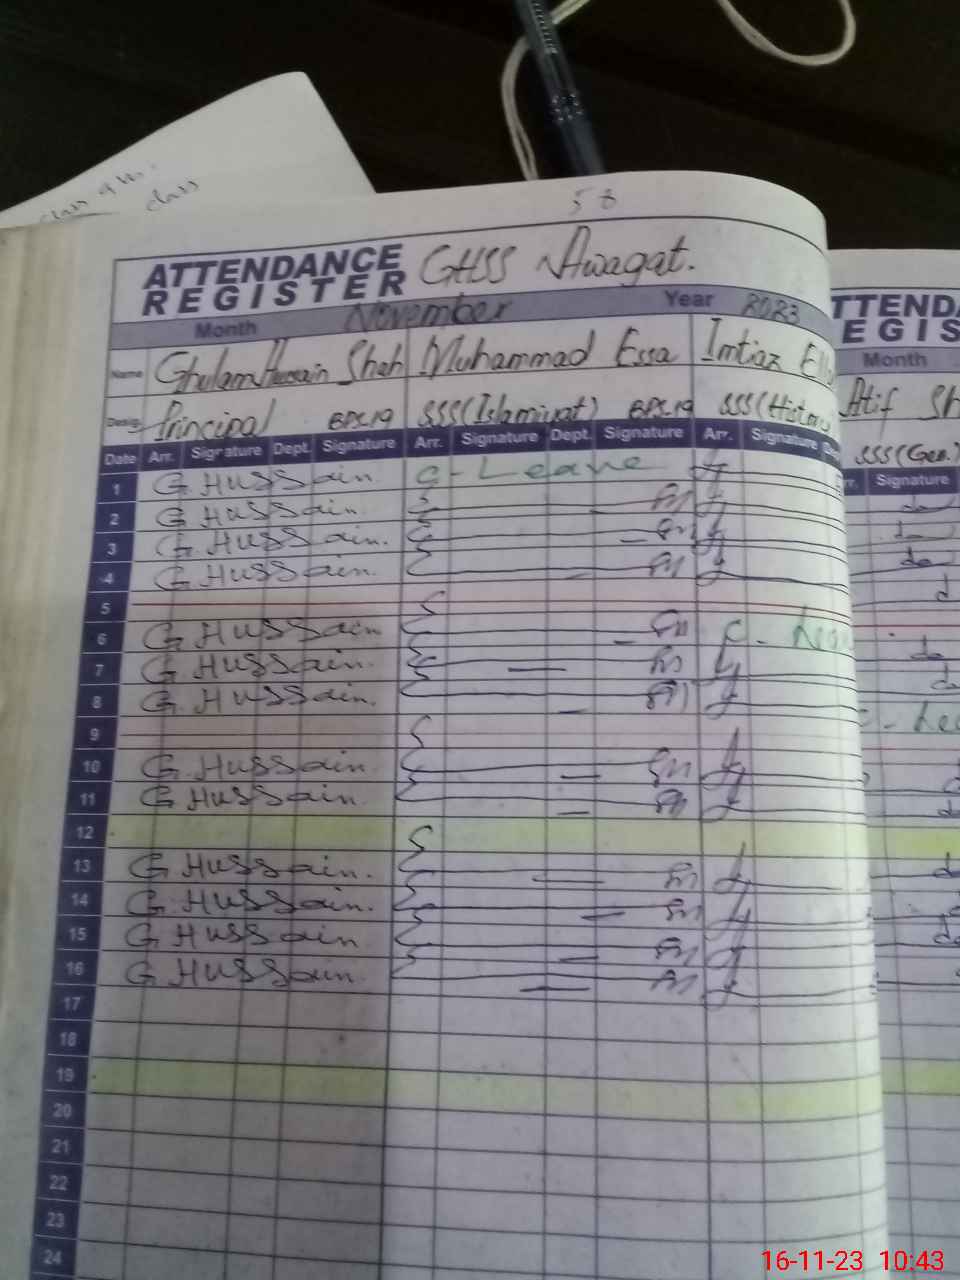 class
class
58
ATTENDANCE REGISTER GHSS Awagat.
Month November Year 2023
Name Ghulam Hussain Shah Muhammad Essa Imtiaz
Desig. Principal BPS-19 SSS(Islamiyat) BPS-19 SSS(History
Date Arr. Signature Dept. Signature Arr. Signature Dept. Signature Arr. Signature
1 G. Hussain. C-Leave
2 G. Hussain.
3 G. Hussain.
4 G. Hussain.
5
6 G. Hussain C-
7 G. Hussain.
8 G. Hussain.
9
10 G. Hussain.
11 G. Hussain.
12
13 G. Hussain.
14 G. Hussain.
15 G. Hussain
16 G. Hussain.
17
18
19
20
21
22
23
24
TTENDA
EGIS
Month
Atif Sh
SSS(Gen.)
rr. Signature
do
do
do
d
do
d
- Lea
d
do
do
do
16-11-23 10:43